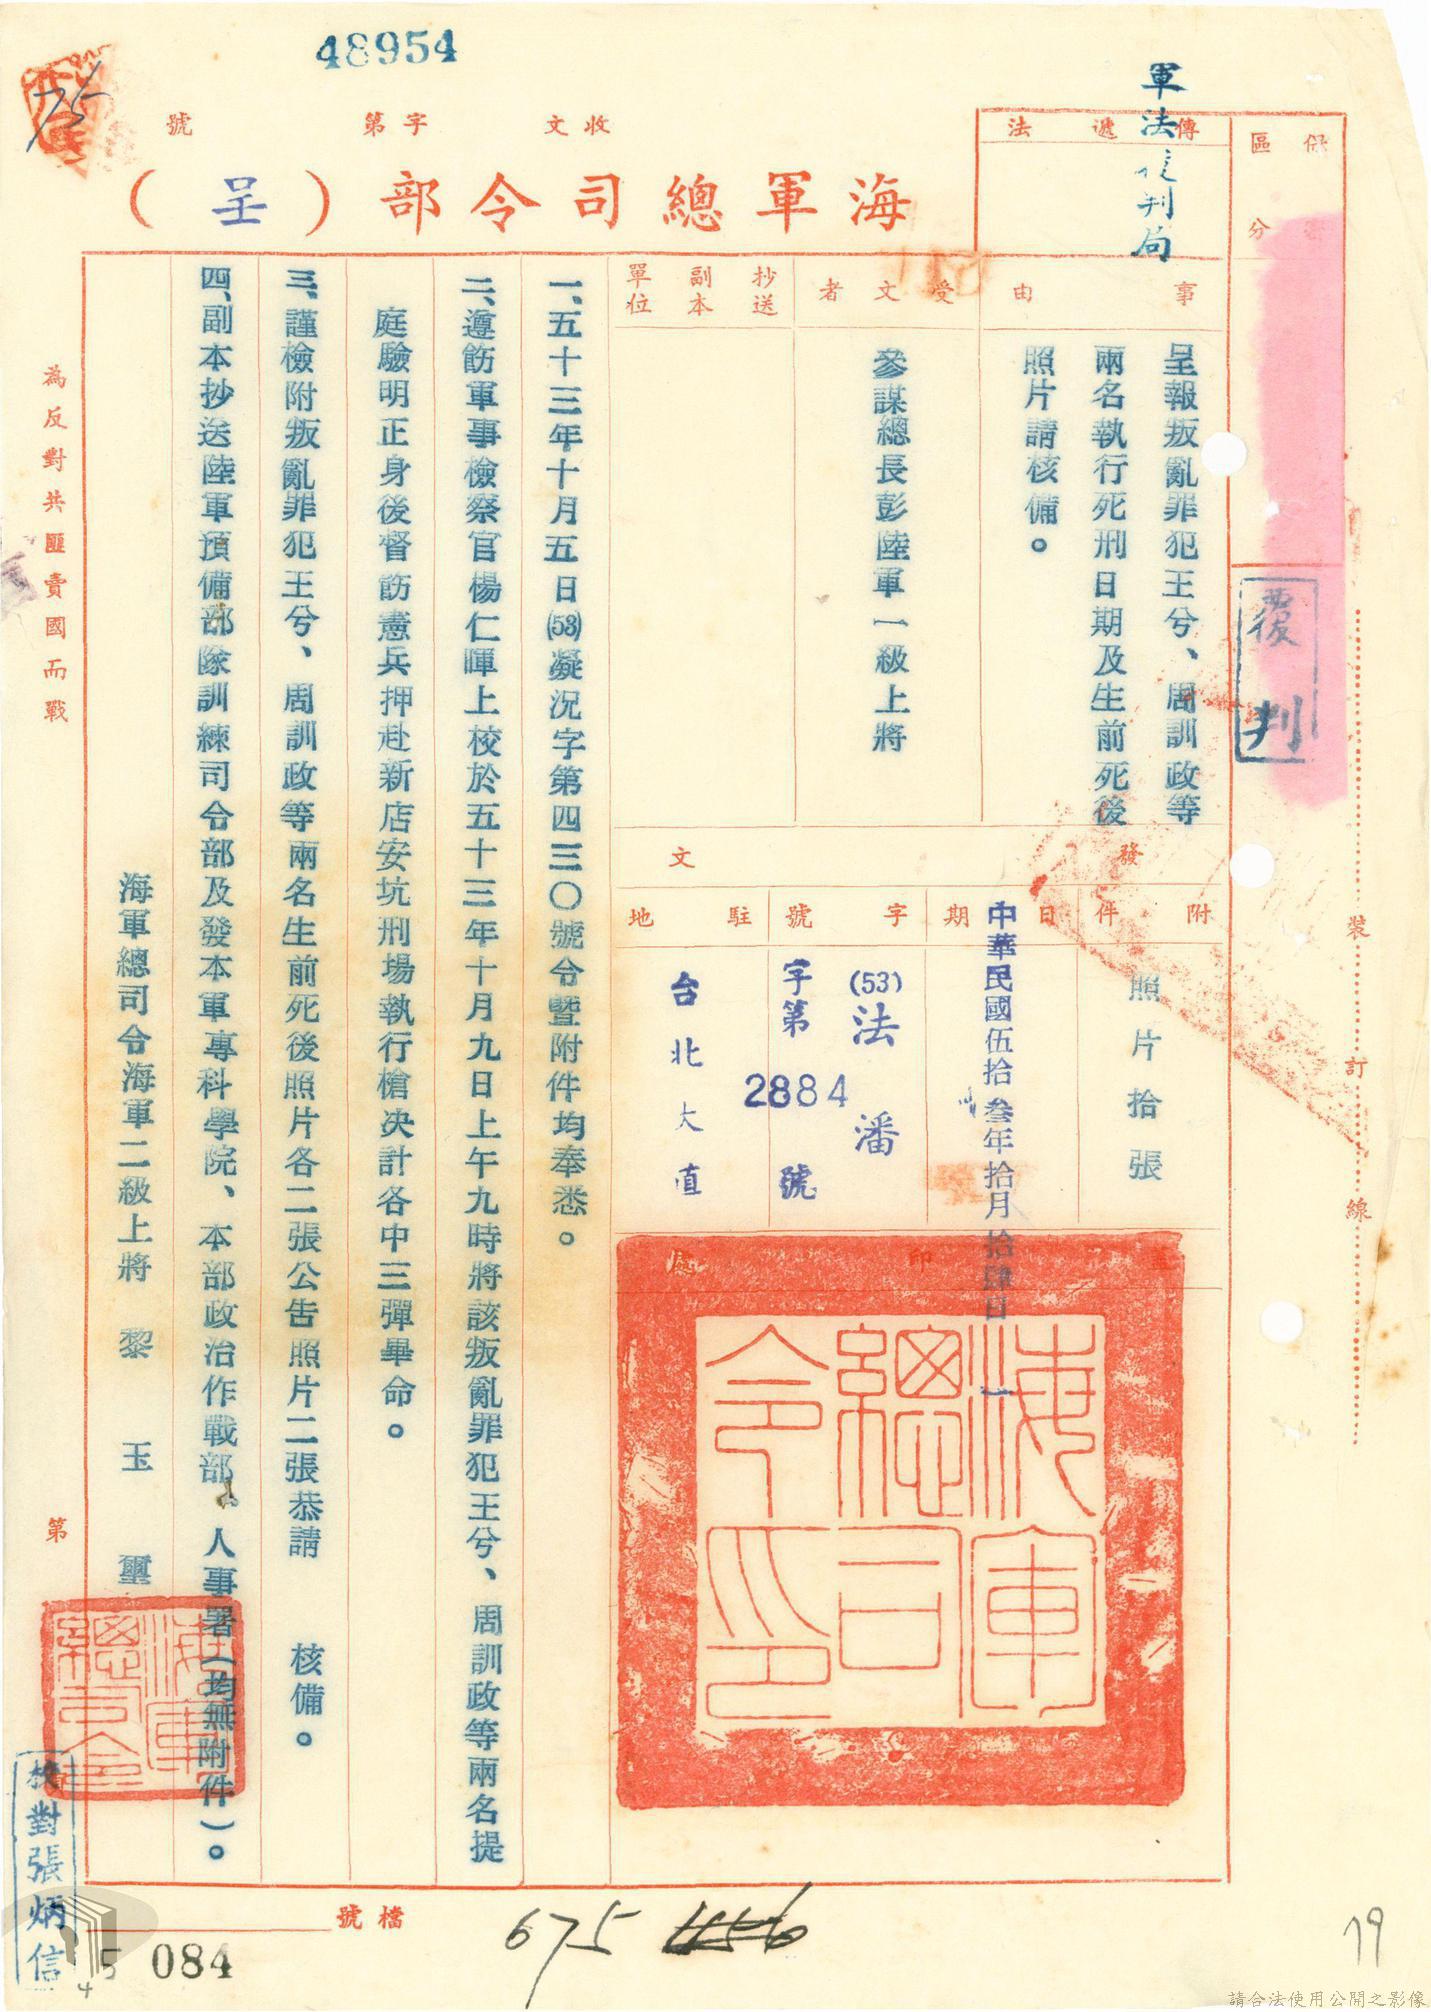 48954
收文 字第 號
海軍總司令部(呈)
軍法覆判局
傳遞法
保密區分
覆判
事由
呈報叛亂罪犯王兮、周訓政等
兩名執行死刑日期及生前死後
照片請核備。
受文者
參謀總長彭陸軍一級上將
抄送副本單位
發文
附件
照片拾張
日期
中華民國伍拾叁年拾月拾肆日
字號
(53)法潘
字第2884號
駐地
台北大直
蓋印處
海軍總司令印
一、五十三年十月五日(53)凝況字第四三〇號令暨附件均奉悉。
二、遵飭軍事檢察官楊仁暉上校於五十三年十月九日上午九時將該叛亂罪犯王兮、周訓政等兩名提
庭驗明正身後督飭憲兵押赴新店安坑刑場執行槍決計各中三彈畢命。
三、謹檢附叛亂罪犯王兮、周訓政等兩名生前死後照片各二張公告照片二張恭請 核備。
四、副本抄送陸軍預備部隊訓練司令部及發本軍專科學院、本部政治作戰部。人事署(均無附件)。
海軍總司令海軍二級上將 黎玉璽
海軍總司令
校對張炳信
為反對共匪賣國而戰
第
裝訂線
檔號
675
084
79
請合法使用公開之影像